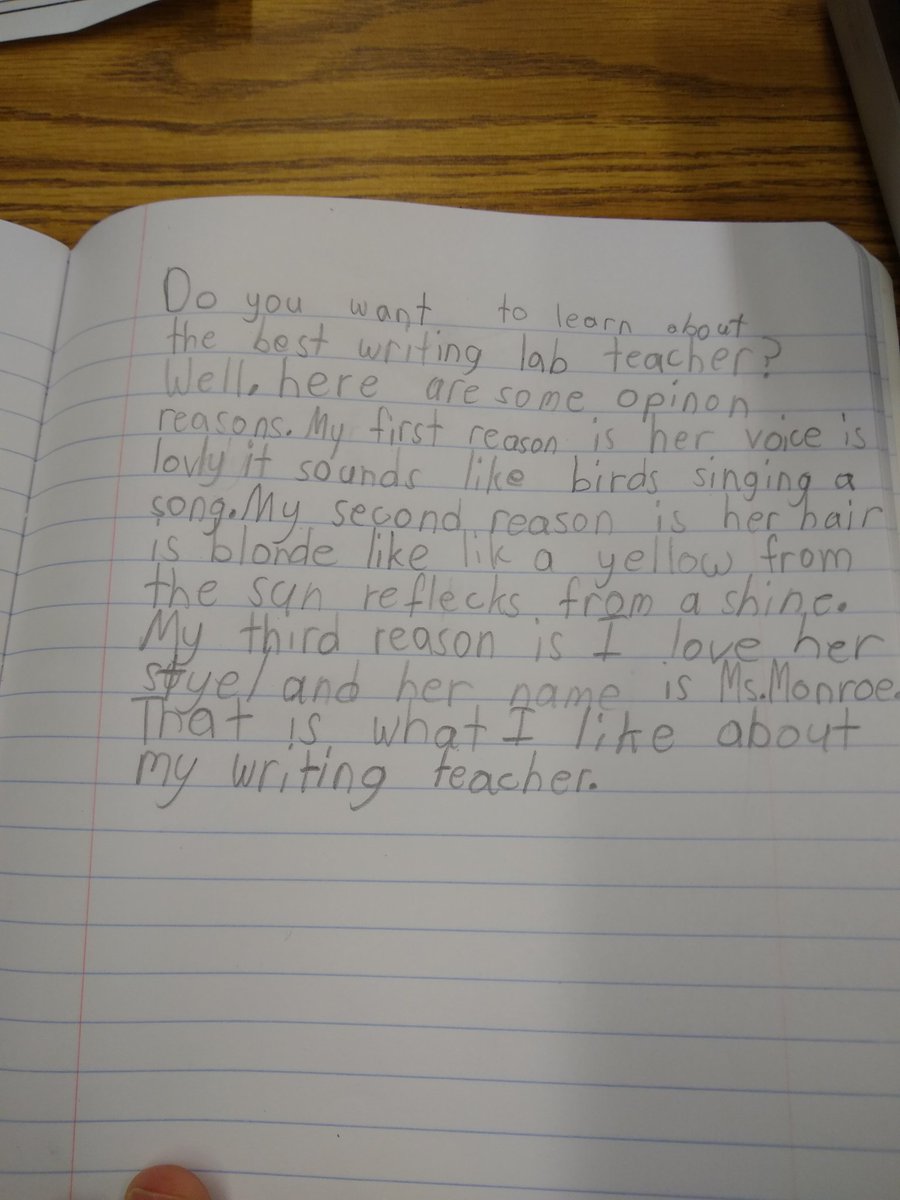 Do you want to learn about
the best writing lab teacher?
Well, here are some opinon
reasons. My first reason is her voice is
lovly it sounds like birds singing a
song. My second reason is her hair
is blonde like lik a yellow from
the sun reflecks from a shine.
My third reason is I love her
styel and her name is Ms. Monroe.
That is what I like about
my writing teacher.